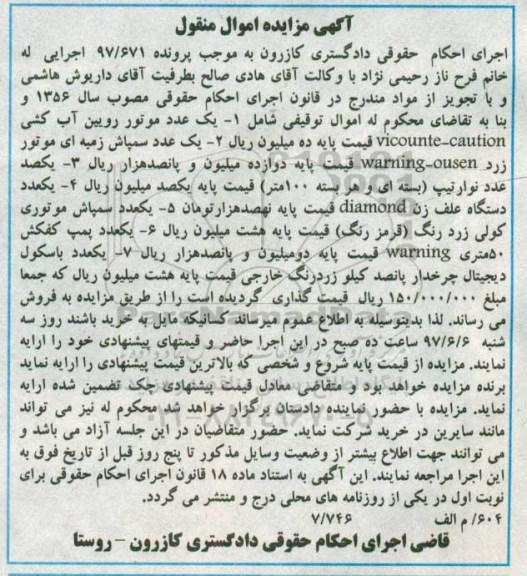 آگهی مزایده اموال منقول
اجرای احکام حقوقی دادگستری کازرون به موجب پرونده ۹۷/۶۷۱ اجرایی له
خانم فرح ناز رحیمی نژاد با وکالت آقای هادی صالح بطرفیت آقای داریوش هاشمی
و با تجویز از مواد مندرج در قانون اجرای احکام حقوقی مصوب سال ۱۳۵۶ و
بنا به تقاضای محکوم له اموال توقیفی شامل ۱- یک عدد موتور روبین آب کشی
vicounte-caution قیمت پایه ده میلیون ریال ۲- یک عدد سمپاش زمیه ای موتور
زرد warning-ousen قیمت پایه دوازده میلیون و پانصدهزار ریال ۳- یکصد
عدد نوارتیپ (بسته ای و هر بسته ۱۰۰متر) قیمت پایه یکصد میلیون ریال ۴- یکعدد
دستگاه علف زن diamond قیمت پایه نهصدهزارتومان ۵- یکعدد سمپاش موتوری
کولی زرد رنگ (قرمز رنگ) قیمت پایه هشت میلیون ریال ۶- یکعدد پمپ کفکش
۵۰متری warning قیمت پایه دومیلیون و پانصدهزار ریال ۷- یکعدد باسکول
دیجیتال چرخدار پانصد کیلو زردرنگ خارجی قیمت پایه هشت میلیون ریال که جمعا
مبلغ ۱۵۰/۰۰۰/۰۰۰ ریال قیمت گذاری گردیده است را از طریق مزایده به فروش
می رساند. لذا بدینوسیله به اطلاع عموم میرساند کسانیکه مایل به خرید باشند روز سه
شنبه ۹۷/۶/۶ ساعت ده صبح در این اجرا حاضر و قیمتهای پیشنهادی خود را ارایه
نمایند. مزایده از قیمت پایه شروع و شخصی که بالاترین قیمت پیشنهادی را ارایه نماید
برنده مزایده خواهد بود و متقاضی معادل قیمت پیشنهادی چک تضمین شده ارایه
نماید. مزایده با حضور نماینده دادستان برگزار خواهد شد محکوم له نیز می تواند
مانند سایرین در خرید شرکت نماید. حضور متقاضیان در این جلسه آزاد می باشد و
می توانند جهت اطلاع بیشتر از وضعیت وسایل مذکور تا پنج روز قبل از تاریخ فوق به
این اجرا مراجعه نمایند. این آگهی به استناد ماده ۱۸ قانون اجرای احکام حقوقی برای
نوبت اول در یکی از روزنامه های محلی درج و منتشر می گردد.
۶۰۴/ م الف ۷/۷۴۶
قاضی اجرای احکام حقوقی دادگستری کازرون - روستا